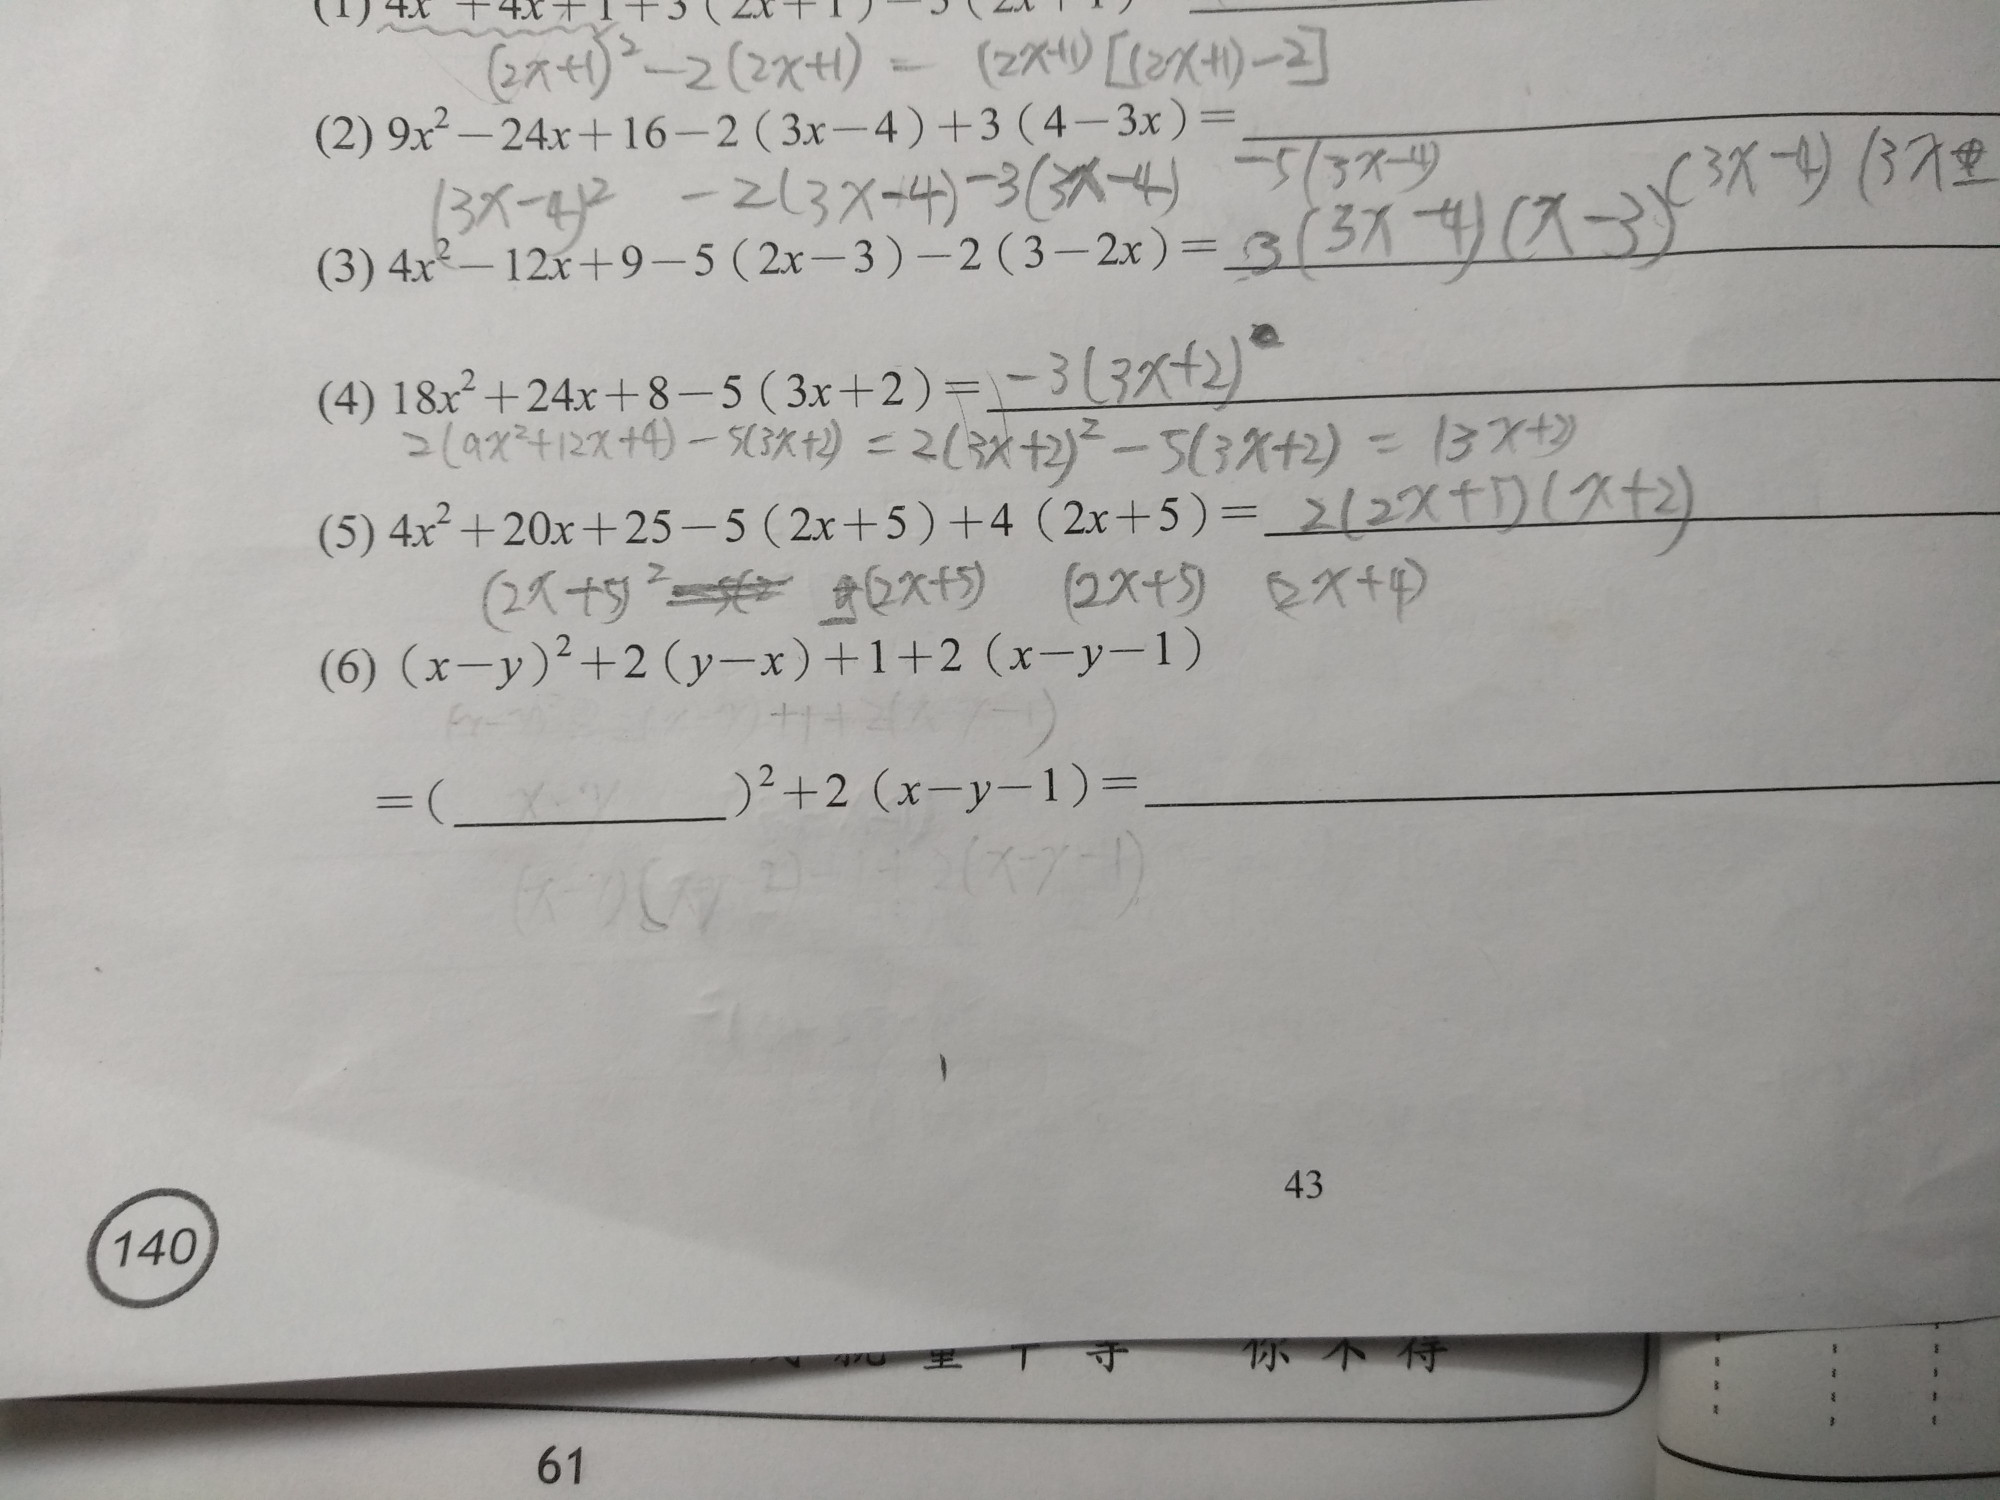 (1) 4x² +4x+1+3(2x+1)-5(2x+1)
(2x+1)²-2(2x+1) = (2x+1)[(2x+1)-2]
(2) 9x²-24x+16-2(3x-4)+3(4-3x)=
(3x-4)² -2(3x-4)-3(3x-4) -5(3x-4) (3x-4)(3x
(3) 4x²-12x+9-5(2x-3)-2(3-2x)= 3(3x-4)(x-3)
(4) 18x²+24x+8-5(3x+2)= -3(3x+2)
2(9x²+12x+4)-5(3x+2) = 2(3x+2)²-5(3x+2) = (3x+2)
(5) 4x²+20x+25-5(2x+5)+4(2x+5)= 2(2x+5)(x+2)
(2x+5)² (2x+5) (2x+5) 2x+4)
(6) (x-y)²+2(y-x)+1+2(x-y-1)
+1+2(x-y-1)
=( x-y )²+2(x-y-1)=
2(x-y-1)
43
140
你不得
61